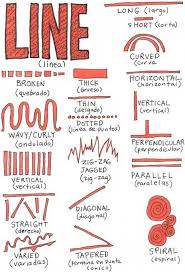 LINE
(linea)
LONG (largo)
SHORT (corta)
CURVED
Curva
BROKEN
(quebrado)
THICK
(grueso)
HORIZONTAL
(horizontal)
THIN
(delgado)
VERTICAL
(vertical)
WAVY/CURLY
(ondulado)
DOTTED
(línea de puntos)
PERPENDICULAR
(perpendicular)
VERTICAL
(vertical)
ZIG-ZAG
JAGGED
(zig-zag)
PARALLEL
(paralelas)
STRAIGHT
(derecho)
DIAGONAL
(diagonal)
SPIRAL
(espiral)
VARIED
(variadas)
TAPERED
(termina en punta
o conico)